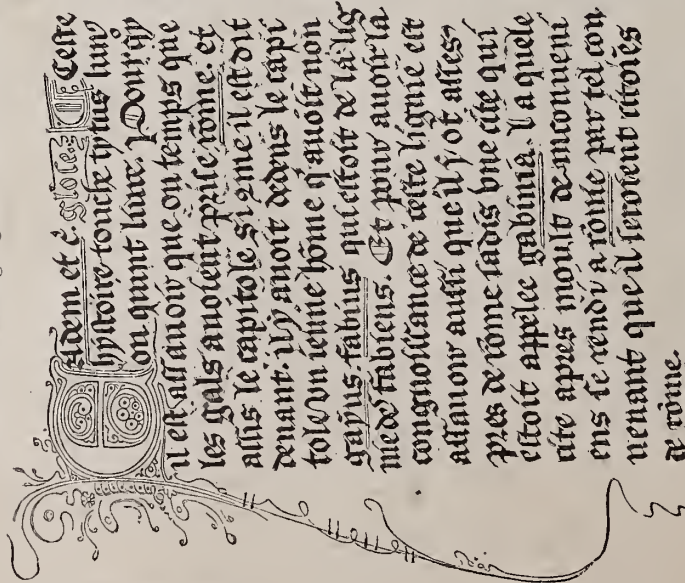 Eadem et c̄. glose. ¶ Ceste
hystoire touche tytus liuiꝯ
ou quint liure. Pourqͥy
il est assauoir que ou temps que
les gals auoient prise rōme. et
assis le capitole si ꝯme il est dit
deuant. il y auoit dedens le capi
tole vn ieune hōme q̄ auoit non
gayus fabius qui estoit de la lig
nie de fabiens. Et pour auoir la
congnoissance de ceste lignie est
assauoir aussi que il y ot asses
pres de rōme iadis vne cite qui
estoit appelee gabinia. La quele
cite apres moult de inconueni
ens se rendi a rōme par tel con
uenant que il seroient citoiēs
de rōme.